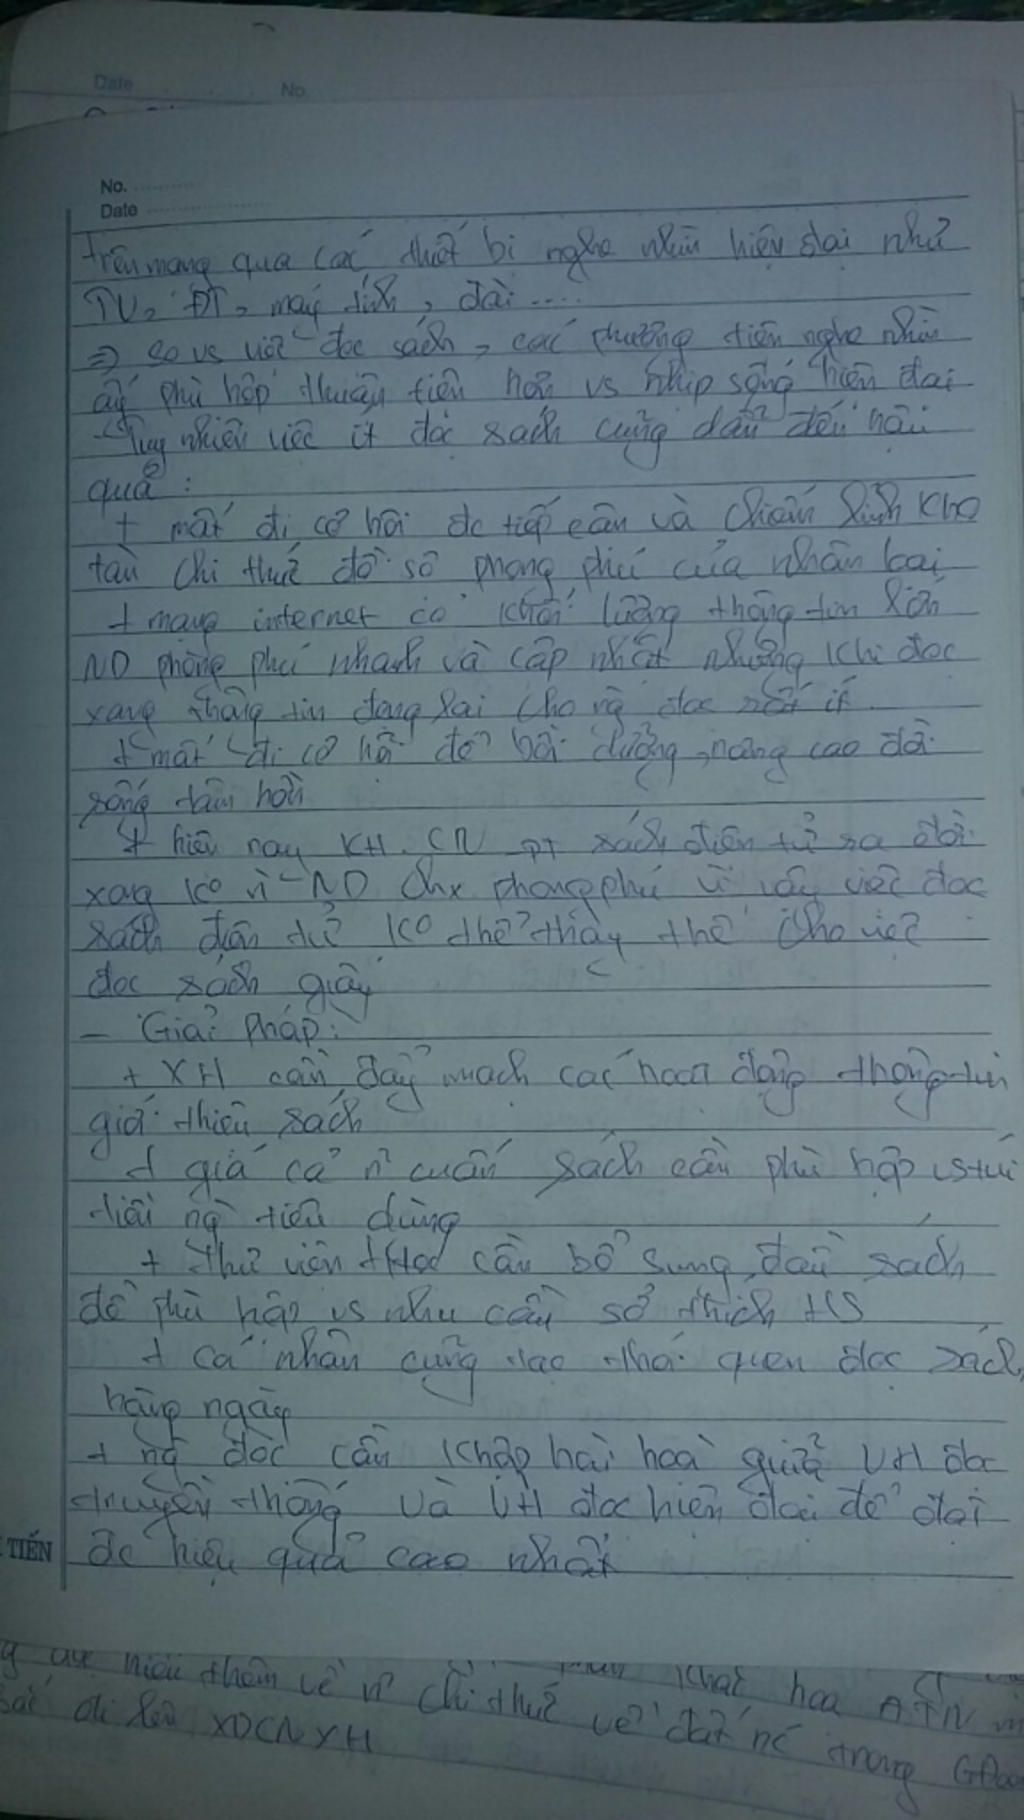 Date No.
No.
Date
trên mạng qua các thiết bị nghe nhìn hiện đại như
TV, ĐT, máy tính, đài ....
=> so vs việc đọc sách, các phương tiện nghe nhìn
ấy phù hợp thuận tiện hơn vs nhịp sống hiện đại
- Tuy nhiên việc ít đọc sách cũng dẫn đến hậu
quả :
+ mất đi cơ hội đc tiếp cận và chiếm lĩnh kho
tàn chi thức đồ sộ phong phú của nhân loại
+ mạng internet có khối lượng thông tin lớn
ND phong phú nhanh và cập nhật nhưng khi đọc
xong thông tin đọng lại cho ng đọc rất ít
+ mất đi cơ hội để bồi dưỡng, nâng cao đời
sống tâm hồn
+ hiện nay KH.CN PT sách điện tử ra đời
xong ko vì ND chx phong phú vì vậy việc đọc
sách điện tử ko thể thay thế cho việc
đọc sách giấy
- Giải pháp:
+ XH cần đẩy mạch các hoạt động thông tin
giới thiệu sách
+ giá cả n~ cuốn sách cần phù hợp vs túi
tiền ng tiêu dùng
+ Thư viện tHọc cần bổ sung, đầu sách
để phù hợp vs nhu cầu sở thích HS
+ Cá nhân cũng tạo thói quen đọc sách
hằng ngày
+ ng đọc cần khợp hài hoà giữa VH đọc
truyền thống và VH đọc hiện đại để đạt
đc hiệu quả cao nhất
TIẾN
hiểu thêm về n~ chi thức về đất nc trong
đi lên XDCNXH